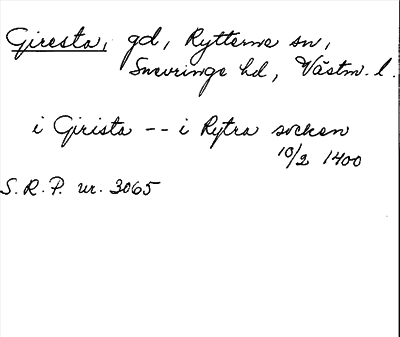 Giresta, gd, Rytterne sn,
Snevringe hd, Västm. l.
i Girista -- i Rytra socken
10/2 1400
S.R.P. nr. 3065